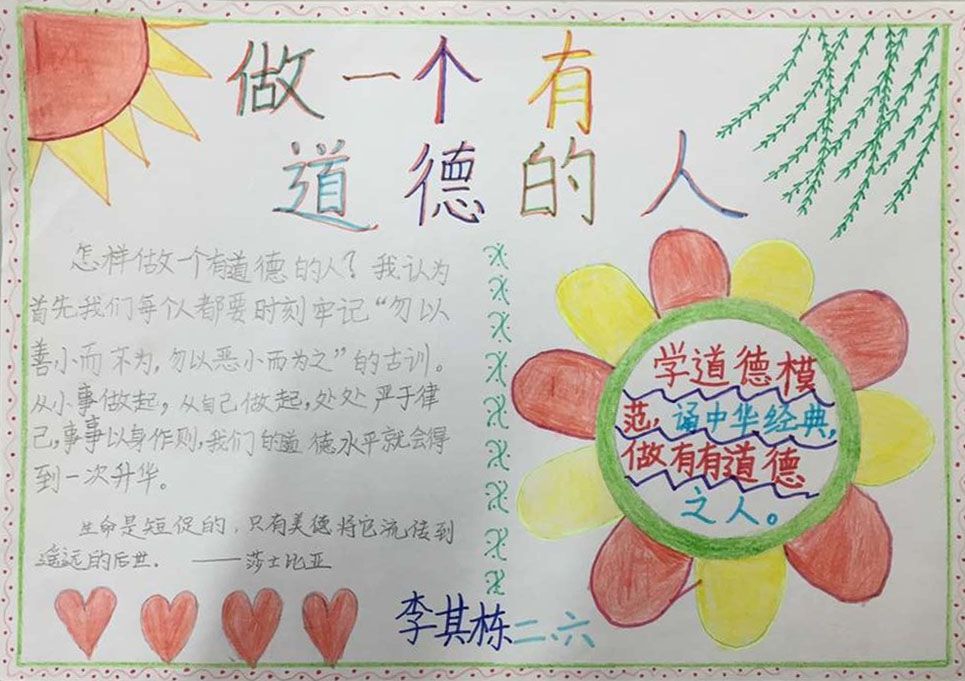 做一个有
道德的人
怎样做一个有道德的人？我认为
首先我们每个人都要时刻牢记“勿以
善小而不为，勿以恶小而为之”的古训。
从小事做起，从自己做起，处处严于律
己，事事以身作则，我们的道德水平就会得
到一次升华。
生命是短促的，只有美德将它流传到
遥远的后世。——莎士比亚
学道德模
范，诵中华经典，
做有有道德
之人。
李其栋二、六